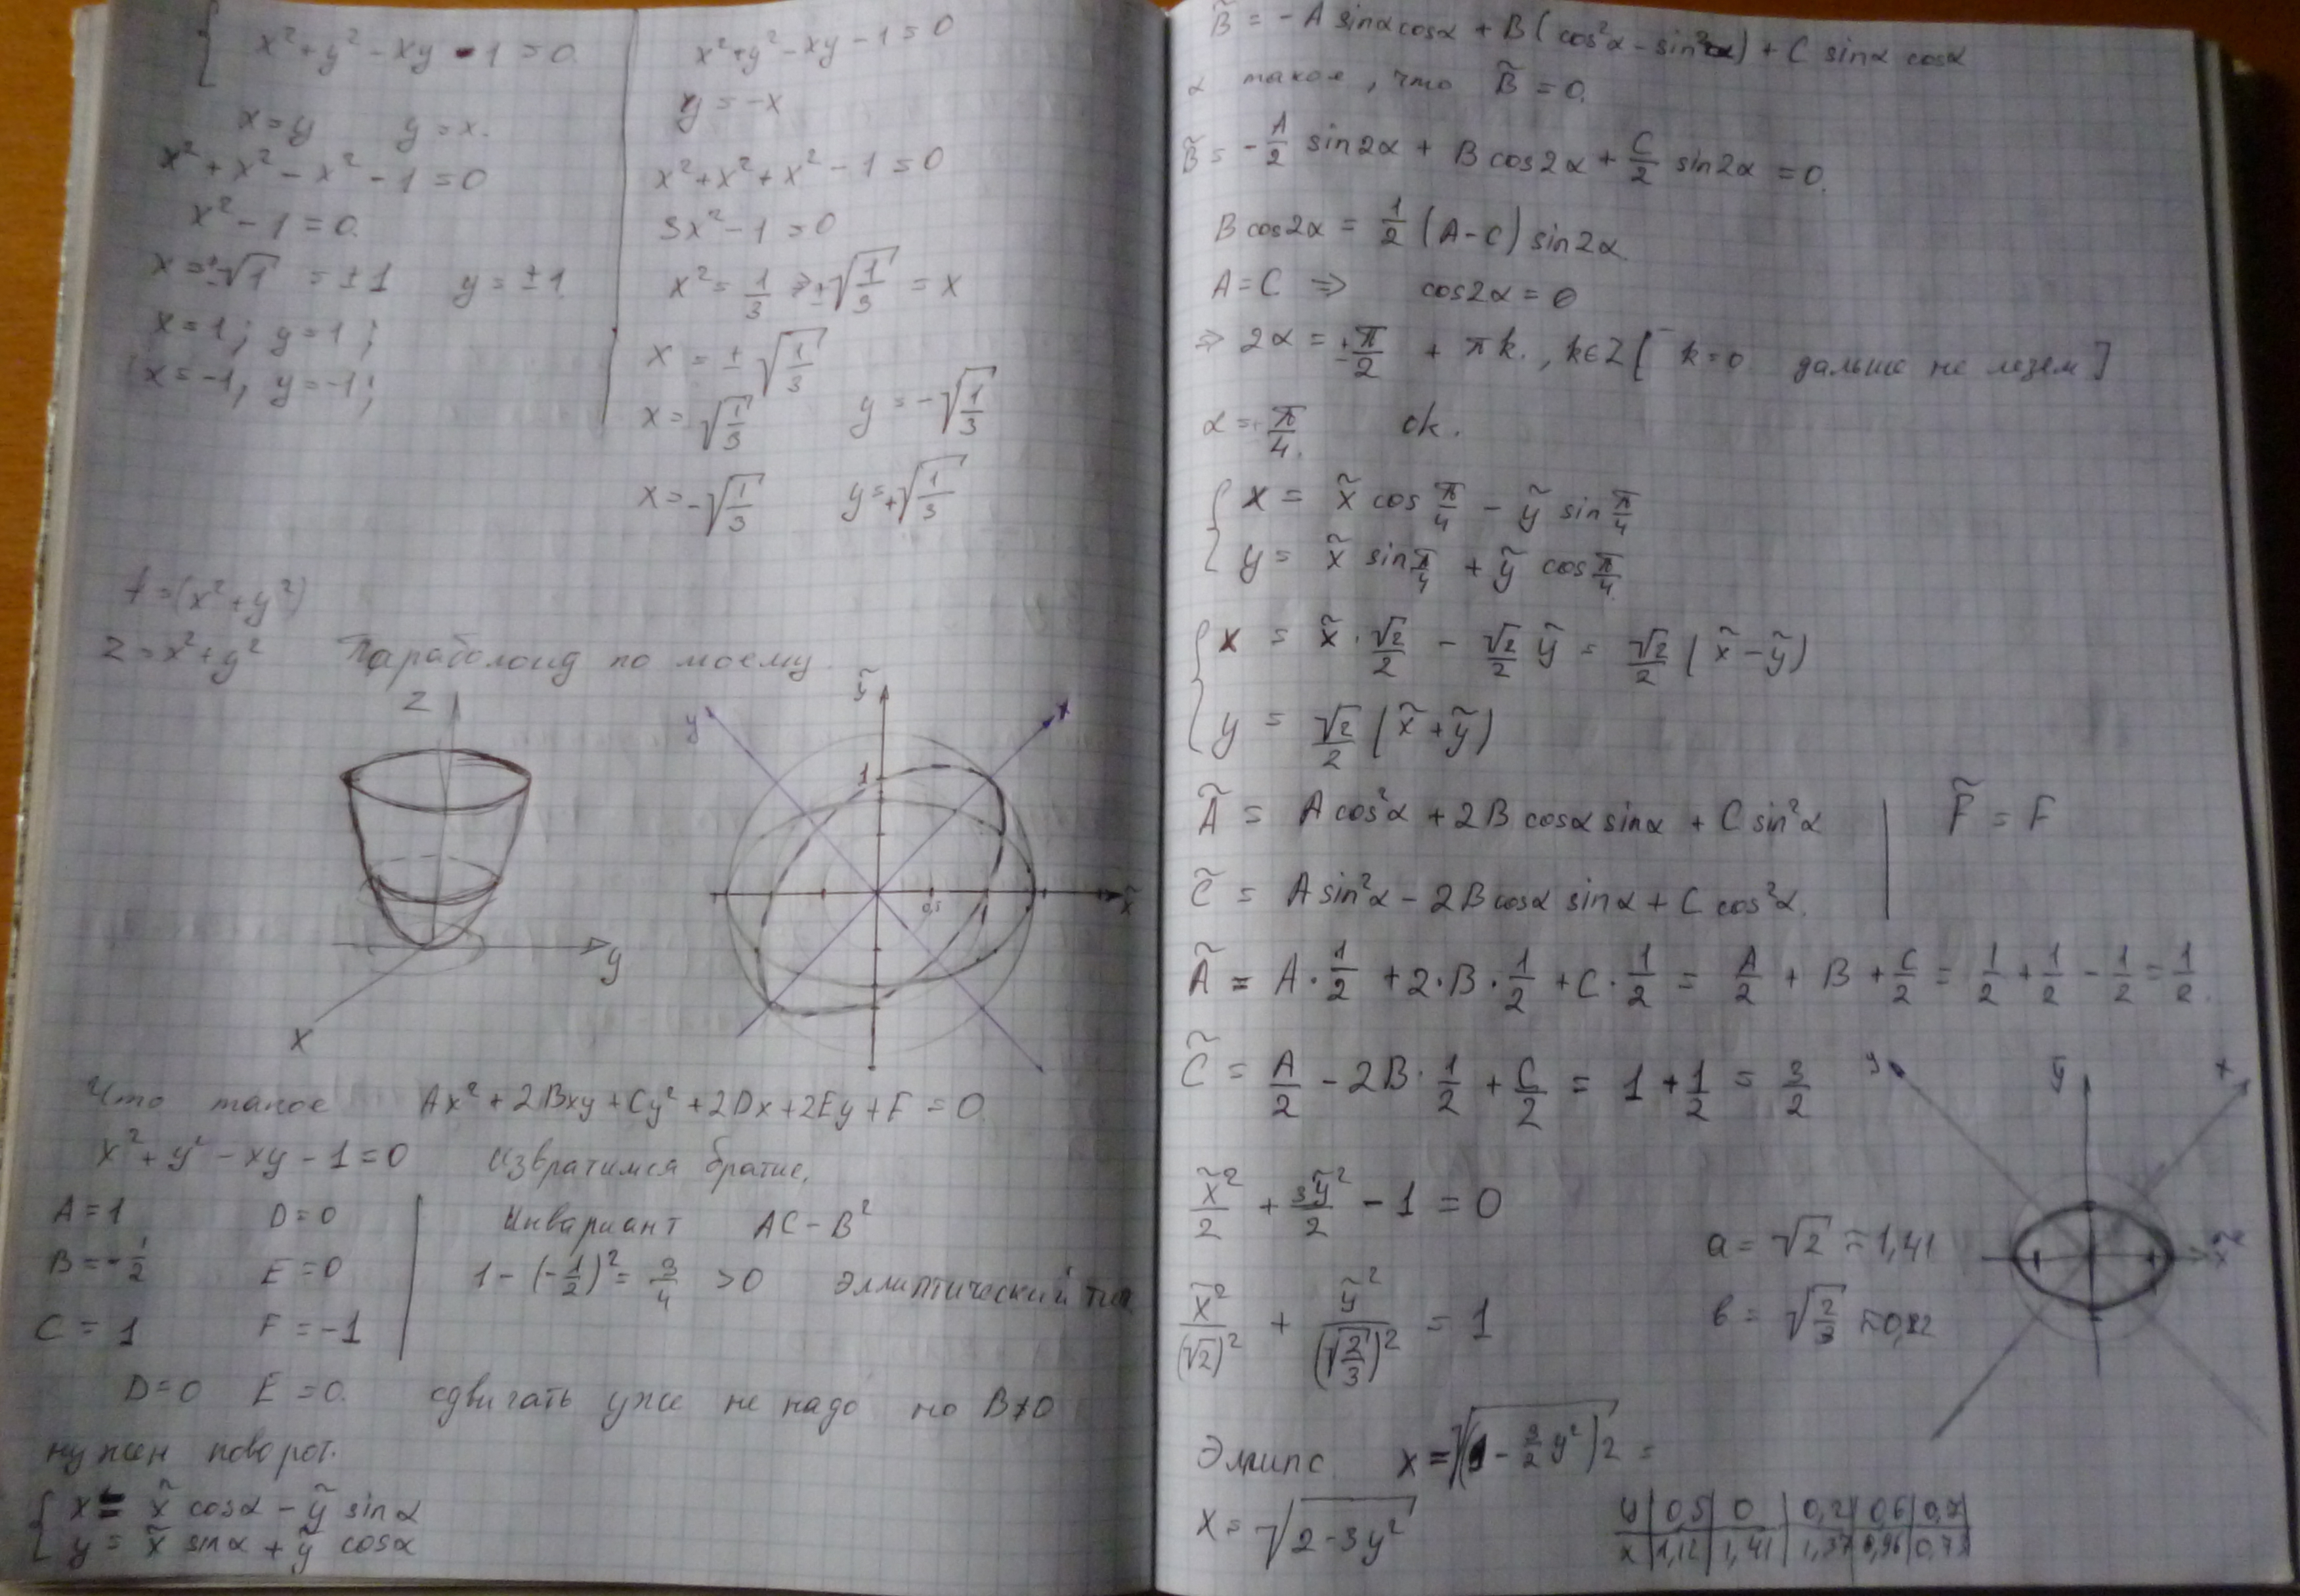 { x² + y² - xy - 1 = 0.
x = y    y = x.
x² + x² - x² - 1 = 0
x² - 1 = 0.
x = ±√1 = ±1    y = ±1.
x = 1; y = 1;
x = -1, y = -1;
x² + y² - xy - 1 = 0
y = -x
x² + x² + x² - 1 = 0
3x² - 1 = 0
x² = 1/3 ⇒ ±√(1/3) = x
x = ±√(1/3)
x = √(1/3)    y = -√(1/3)
x = -√(1/3)    y = +√(1/3)
f = (x² + y²)
z = x² + y²    Параболоид по моему.
z
y
x
ỹ
y
x
1
0,5
1
x̃
Что такое    Ax² + 2Bxy + Cy² + 2Dx + 2Ey + F = 0.
x² + y² - xy - 1 = 0    извратимся братие.
A = 1    D = 0
B = -1/2    E = 0
C = 1    F = -1
Инвариант    AC - B²
1 - (-1/2)² = 3/4 > 0    эллиптический тип
D = 0    E = 0.    сдвигать уже не надо но B ≠ 0
нужен поворот.
{ x = x̃ cosα - ỹ sinα
y = x̃ sinα + ỹ cosα
B̃ = -A sinα cosα + B(cos²α - sin²α) + C sinα cosα
α такое, что B̃ = 0.
B̃ = -A/2 sin2α + B cos2α + C/2 sin2α = 0.
B cos2α = 1/2 (A - C) sin2α.
A = C ⇒ cos2α = 0
⇒ 2α = ±π/2 + πk., k∈Z [ k = 0 дальше не лезем ]
α = π/4.    ok.
{ x = x̃ cos π/4 - ỹ sin π/4
y = x̃ sin π/4 + ỹ cos π/4
{ x = x̃ · √2/2 - √2/2 ỹ = √2/2 (x̃ - ỹ)
y = √2/2 (x̃ + ỹ)
Ã = A cos²α + 2B cosα sinα + C sin²α    F̃ = F
C̃ = A sin²α - 2B cosα sinα + C cos²α.
Ã = A·1/2 + 2·B·1/2 + C·1/2 = A/2 + B + C/2 = 1/2 + 1/2 - 1/2 = 1/2.
C̃ = A/2 - 2B·1/2 + C/2 = 1 + 1/2 = 3/2
y
ỹ
x
x̃
x̃²/2 + 3ỹ²/2 - 1 = 0
a = √2 ≈ 1,41
x̃²/(√2)² + ỹ²/(√(2/3))² = 1
b = √(2/3) ≈ 0,82
Эллипс.    x = √((1 - 3/2 y²)2) =
x = √(2 - 3y²)
y | 0,5 | 0 | 0,2 | 0,6 | 0,7
x | 1,12 | 1,41 | 1,37 | 0,96 | 0,73